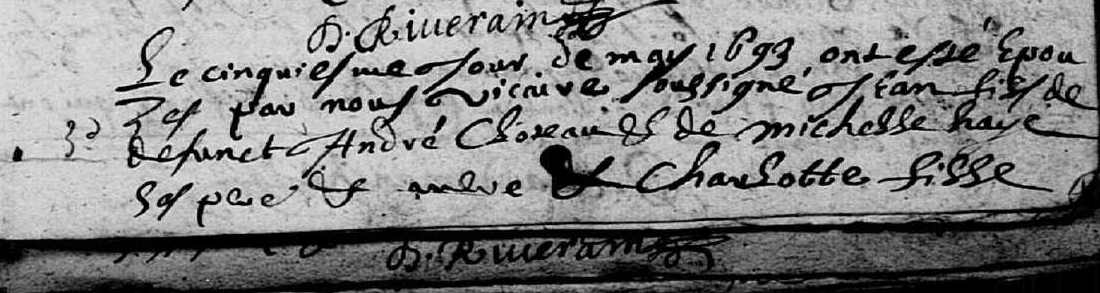 D. Riverain
Le cinquiesme Jour de may 1693 ont esté Epou
zes par nous vicaire soussigné Jean fils de
defunct André Choreau & de michelle haye
ses pere & mere & Charlotte fille
D. Riverain